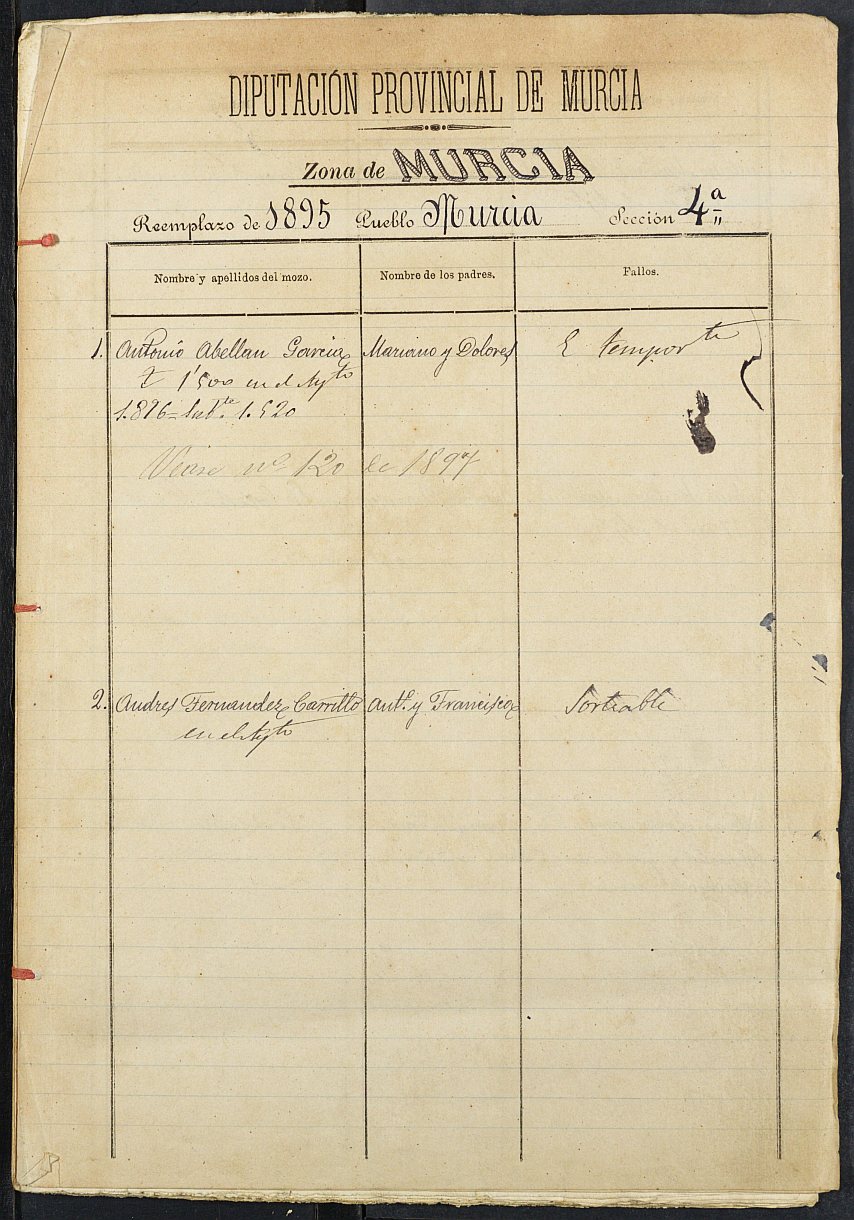 DIPUTACIÓN PROVINCIAL DE MURCIA
Zona de MURCIA
Reemplazo de 1895 Pueblo Murcia Sección 4ª
Nombre y apellidos del mozo. Nombre de los padres. Fallos.
1. Antonio Abellan Garcia Mariano y Dolores E temporte
1'500 en el Aytº
1.896 1.520
Vease nº 120 de 1897
2. Andres Fernandez Carrillo Antº y Francisca Sorteable
en el Aytº